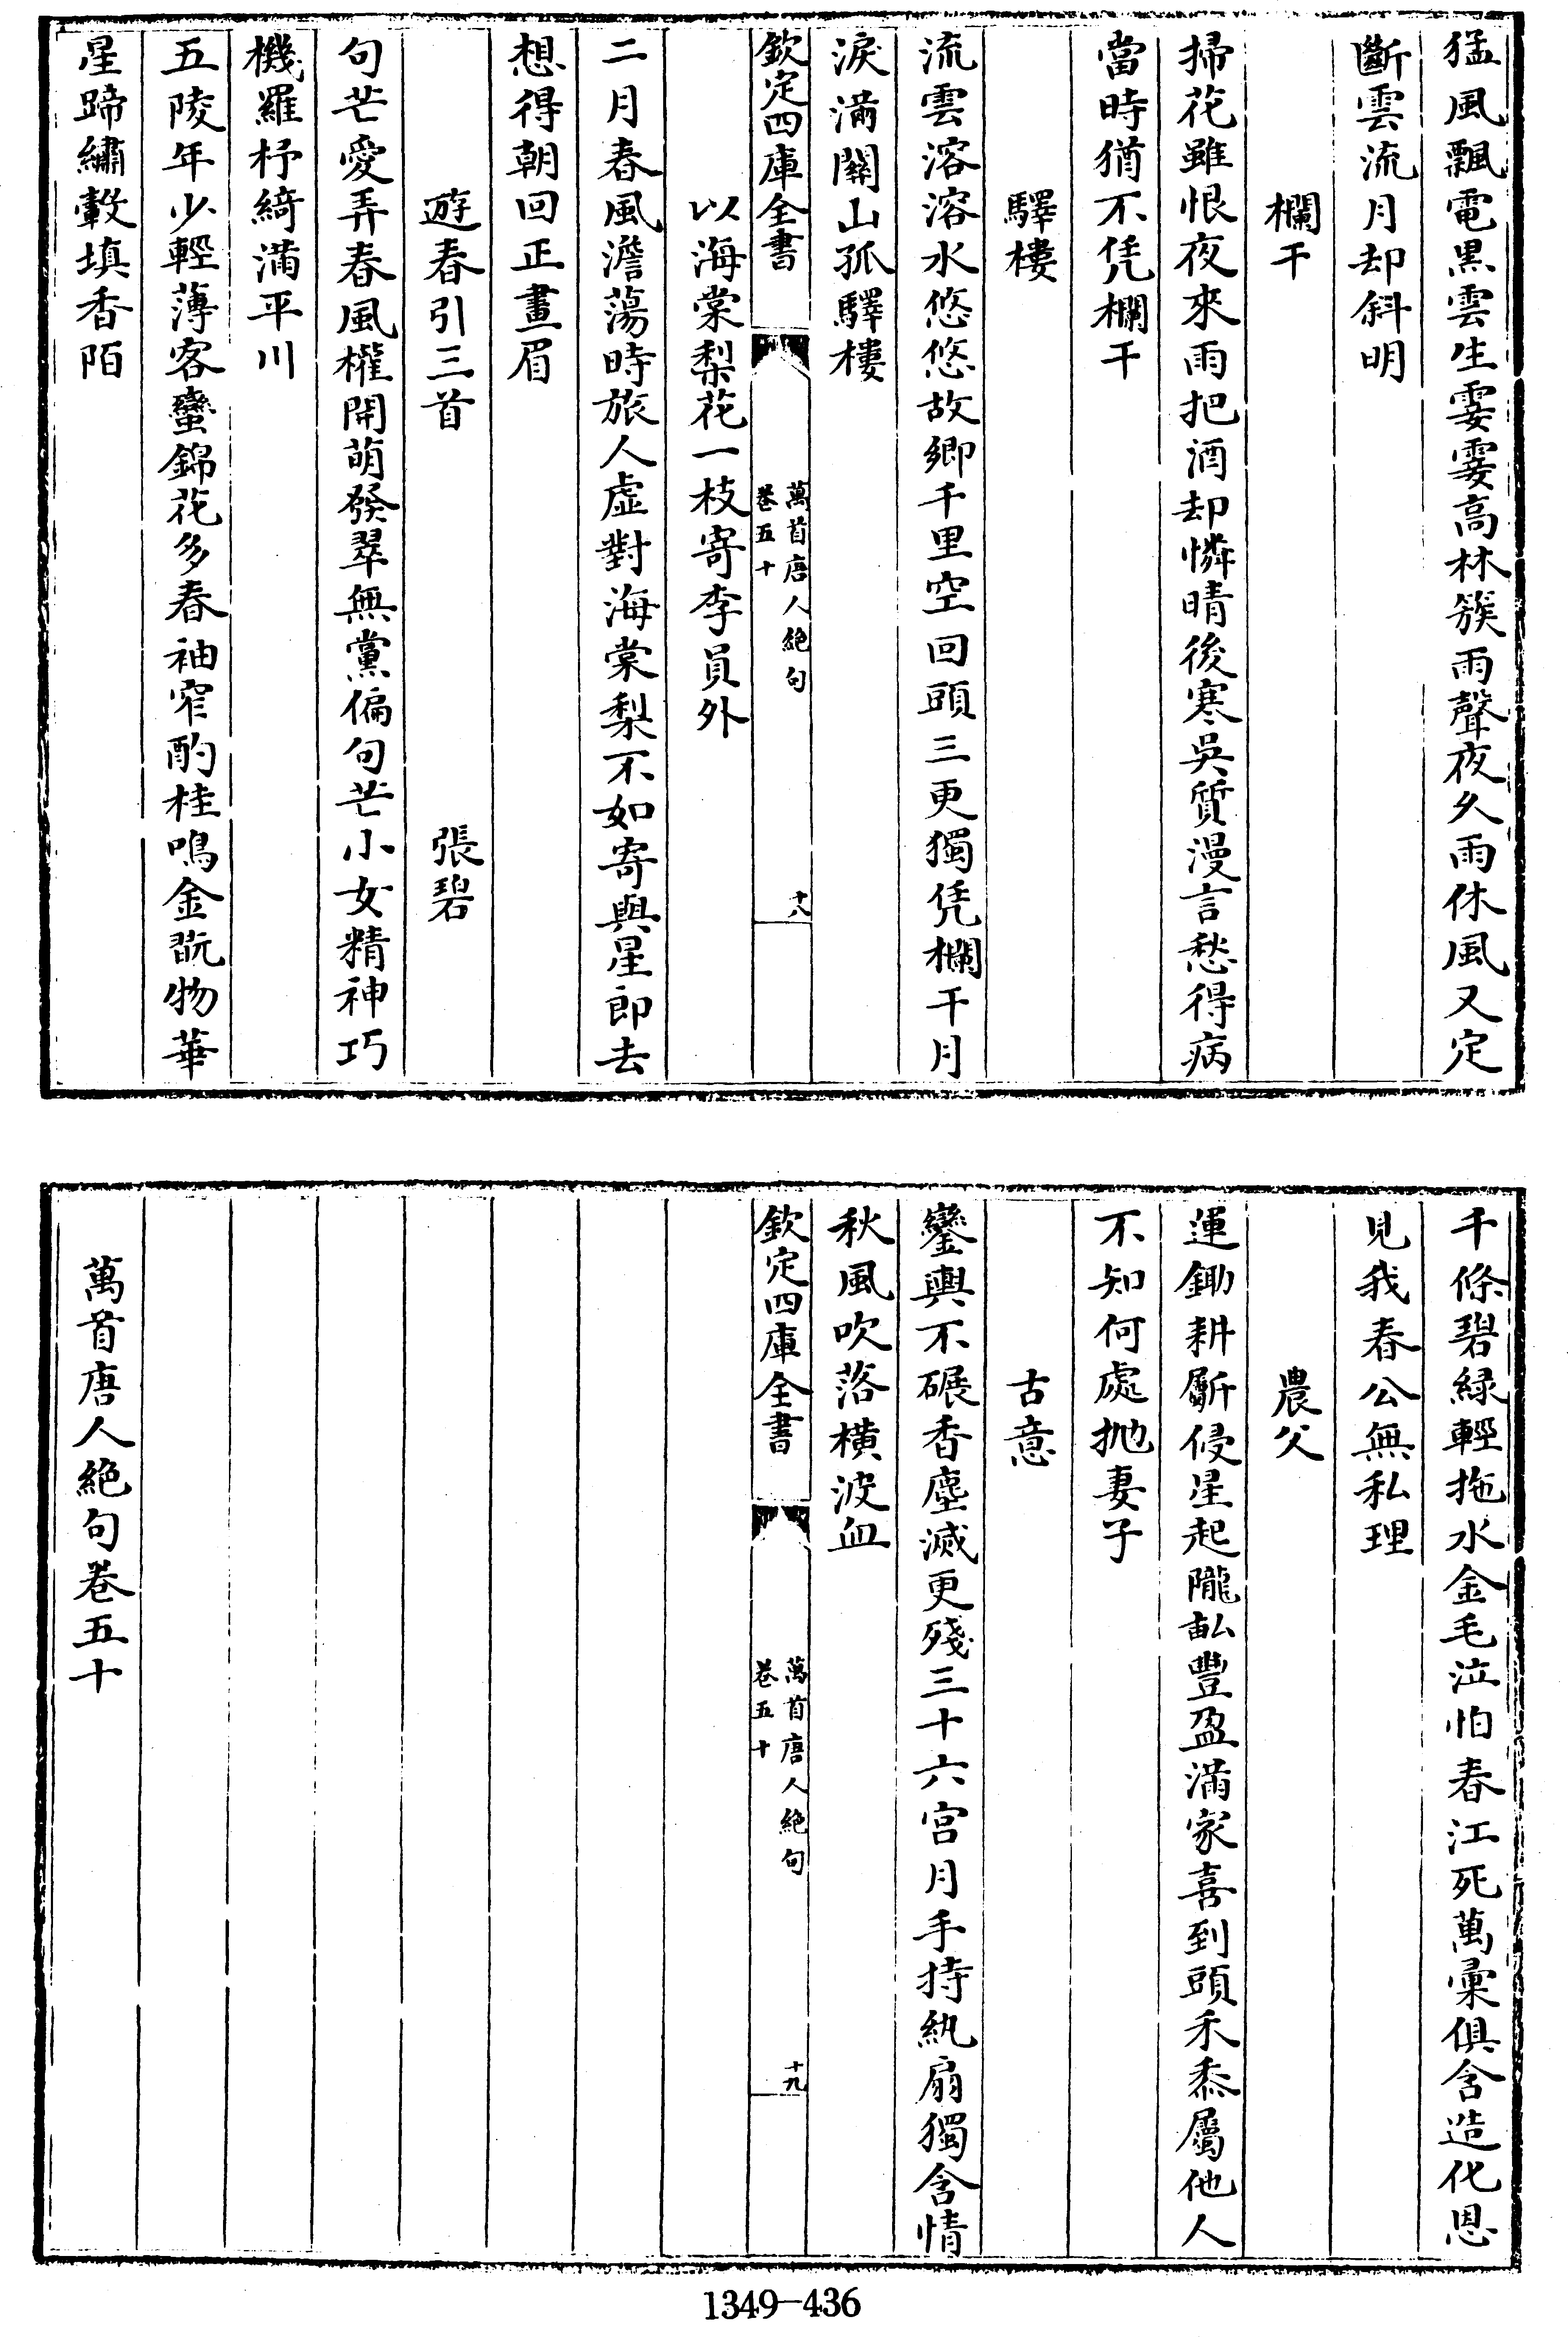 猛風飄電黒雲生霎霎高林簇雨聲夜久雨休風又定
斷雲流月却斜明
欄干
掃花雖恨夜來雨把酒却憐晴後寒吳質漫言愁得病
當時猶不凭欄干
驛樓
流雲溶溶水悠悠故鄉千里空回頭三更獨凭欄干月
淚滿關山孤驛樓
欽定四庫全書
萬首唐人絶句
卷五十
十八
以海棠梨花一枝寄李員外
二月春風澹蕩時旅人虛對海棠梨不如寄與星郎去
想得朝回正畫眉
遊春引三首 張碧
句芒愛弄春風權開萌發翠無黨偏句芒小女精神巧
機羅杼綺滿平川
五陵年少輕薄客蠻錦花多春袖窄酌桂鳴金翫物華
星蹄繡轂填香陌
千條碧綠輕拖水金毛泣怕春江死萬彚俱含造化恩
見我春公無私理
農父
運鋤耕斸侵星起隴畝豐盈滿家喜到頭禾黍屬他人
不知何處抛妻子
古意
鑾輿不碾香塵滅更殘三十六宫月手持紈扇獨含情
秋風吹落横波血
欽定四庫全書
萬首唐人絶句
卷五十
十九
萬首唐人絶句卷五十
1349—436